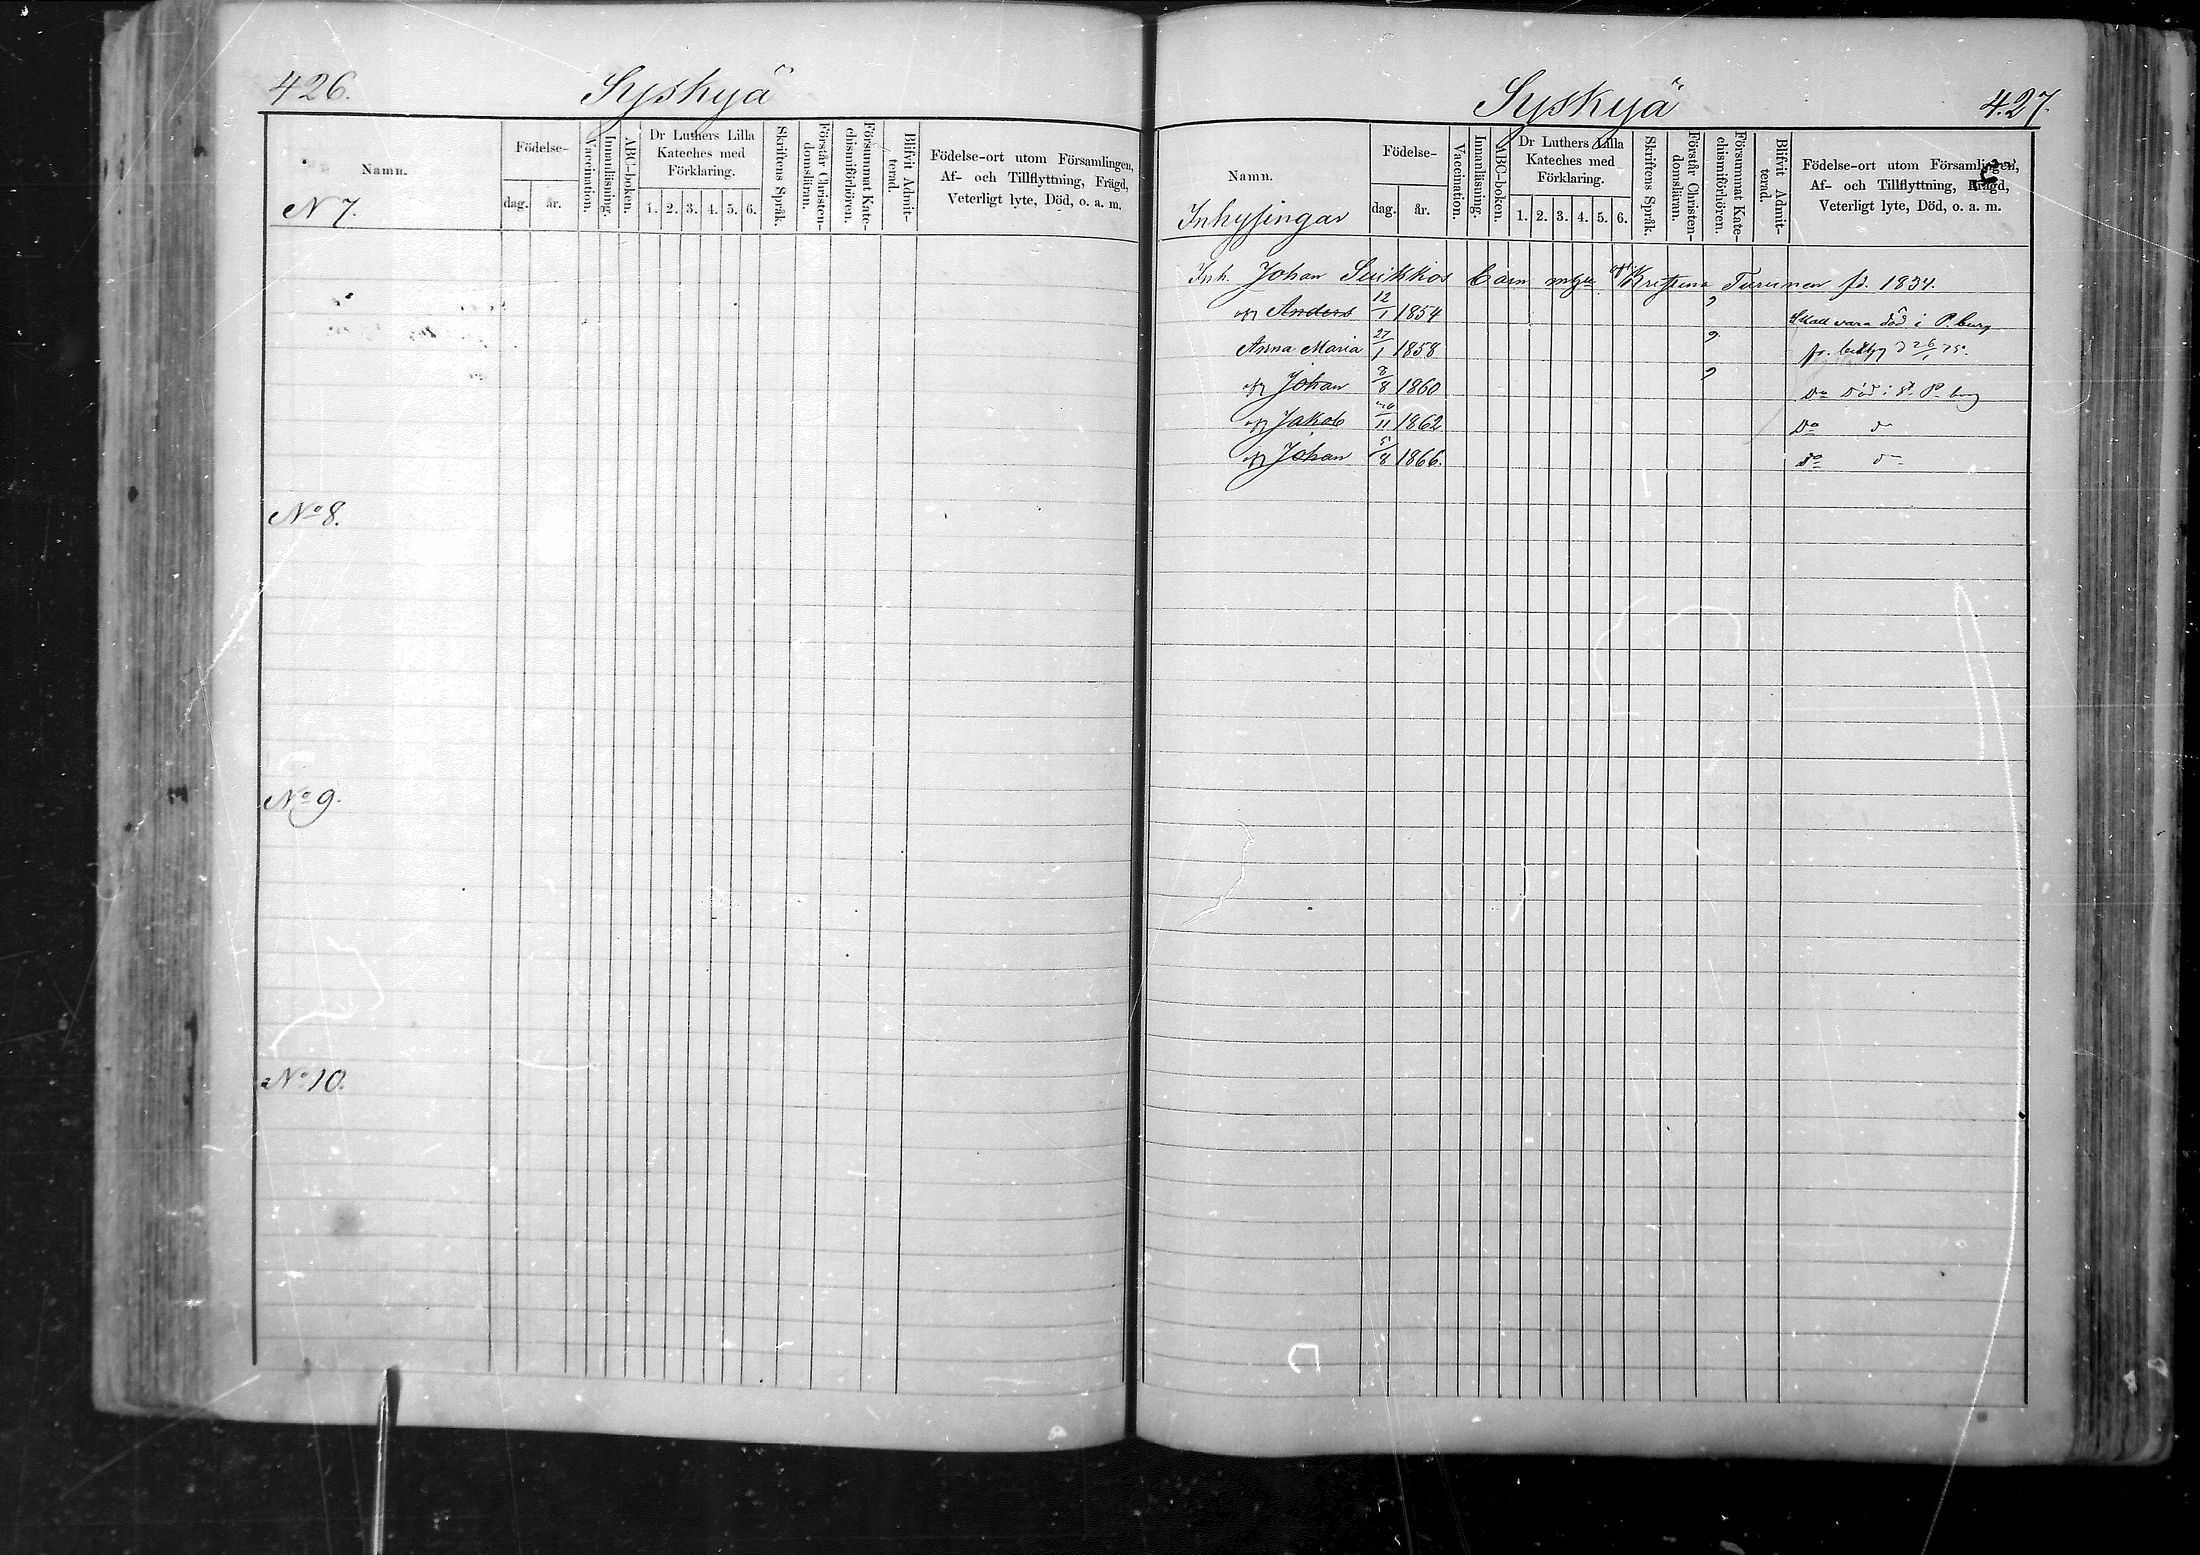 426.
Syskyä
Namn.
Födelse-
dag. år.
Vaccination.
Innanläsning.
ABC-boken.
Dr Luthers Lilla
Kateches med
Förklaring.
1. 2. 3. 4. 5. 6.
Skriftens Språk.
Förstår Christen-
domsläran.
Försummat Kate-
chismiförhören.
Blifvit Admit-
terad.
Födelse-ort utom Församlingen,
Af- och Tillflyttning, Frägd,
Veterligt lyte, Död, o. a. m.
N 7.
No 8.
No 9.
No 10.
Syskyä
427.
Namn.
Födelse-
dag. år.
Vaccination.
Innanläsning.
ABC-boken.
Dr Luthers Lilla
Kateches med
Förklaring.
1. 2. 3. 4. 5. 6.
Skriftens Språk.
Förstår Christen-
domsläran.
Försummat Kate-
chismiförhören.
Blifvit Admit-
terad.
Födelse-ort utom Församlingen,
Af- och Tillflyttning, Frägd,
Veterligt lyte, Död, o. a. m.
Inhysingar
Inh. Johan Suikkos barn Kristina Turunen fd. 1834.
Anders 12/1 1854 Skall vara död i P. burg
Anna Maria 27/1 1858 26/1 75.
Johan 8/8 1860 Do död i St. P. burg
Jakob 26/11 1862 Do do
Johan 5/8 1866. do do